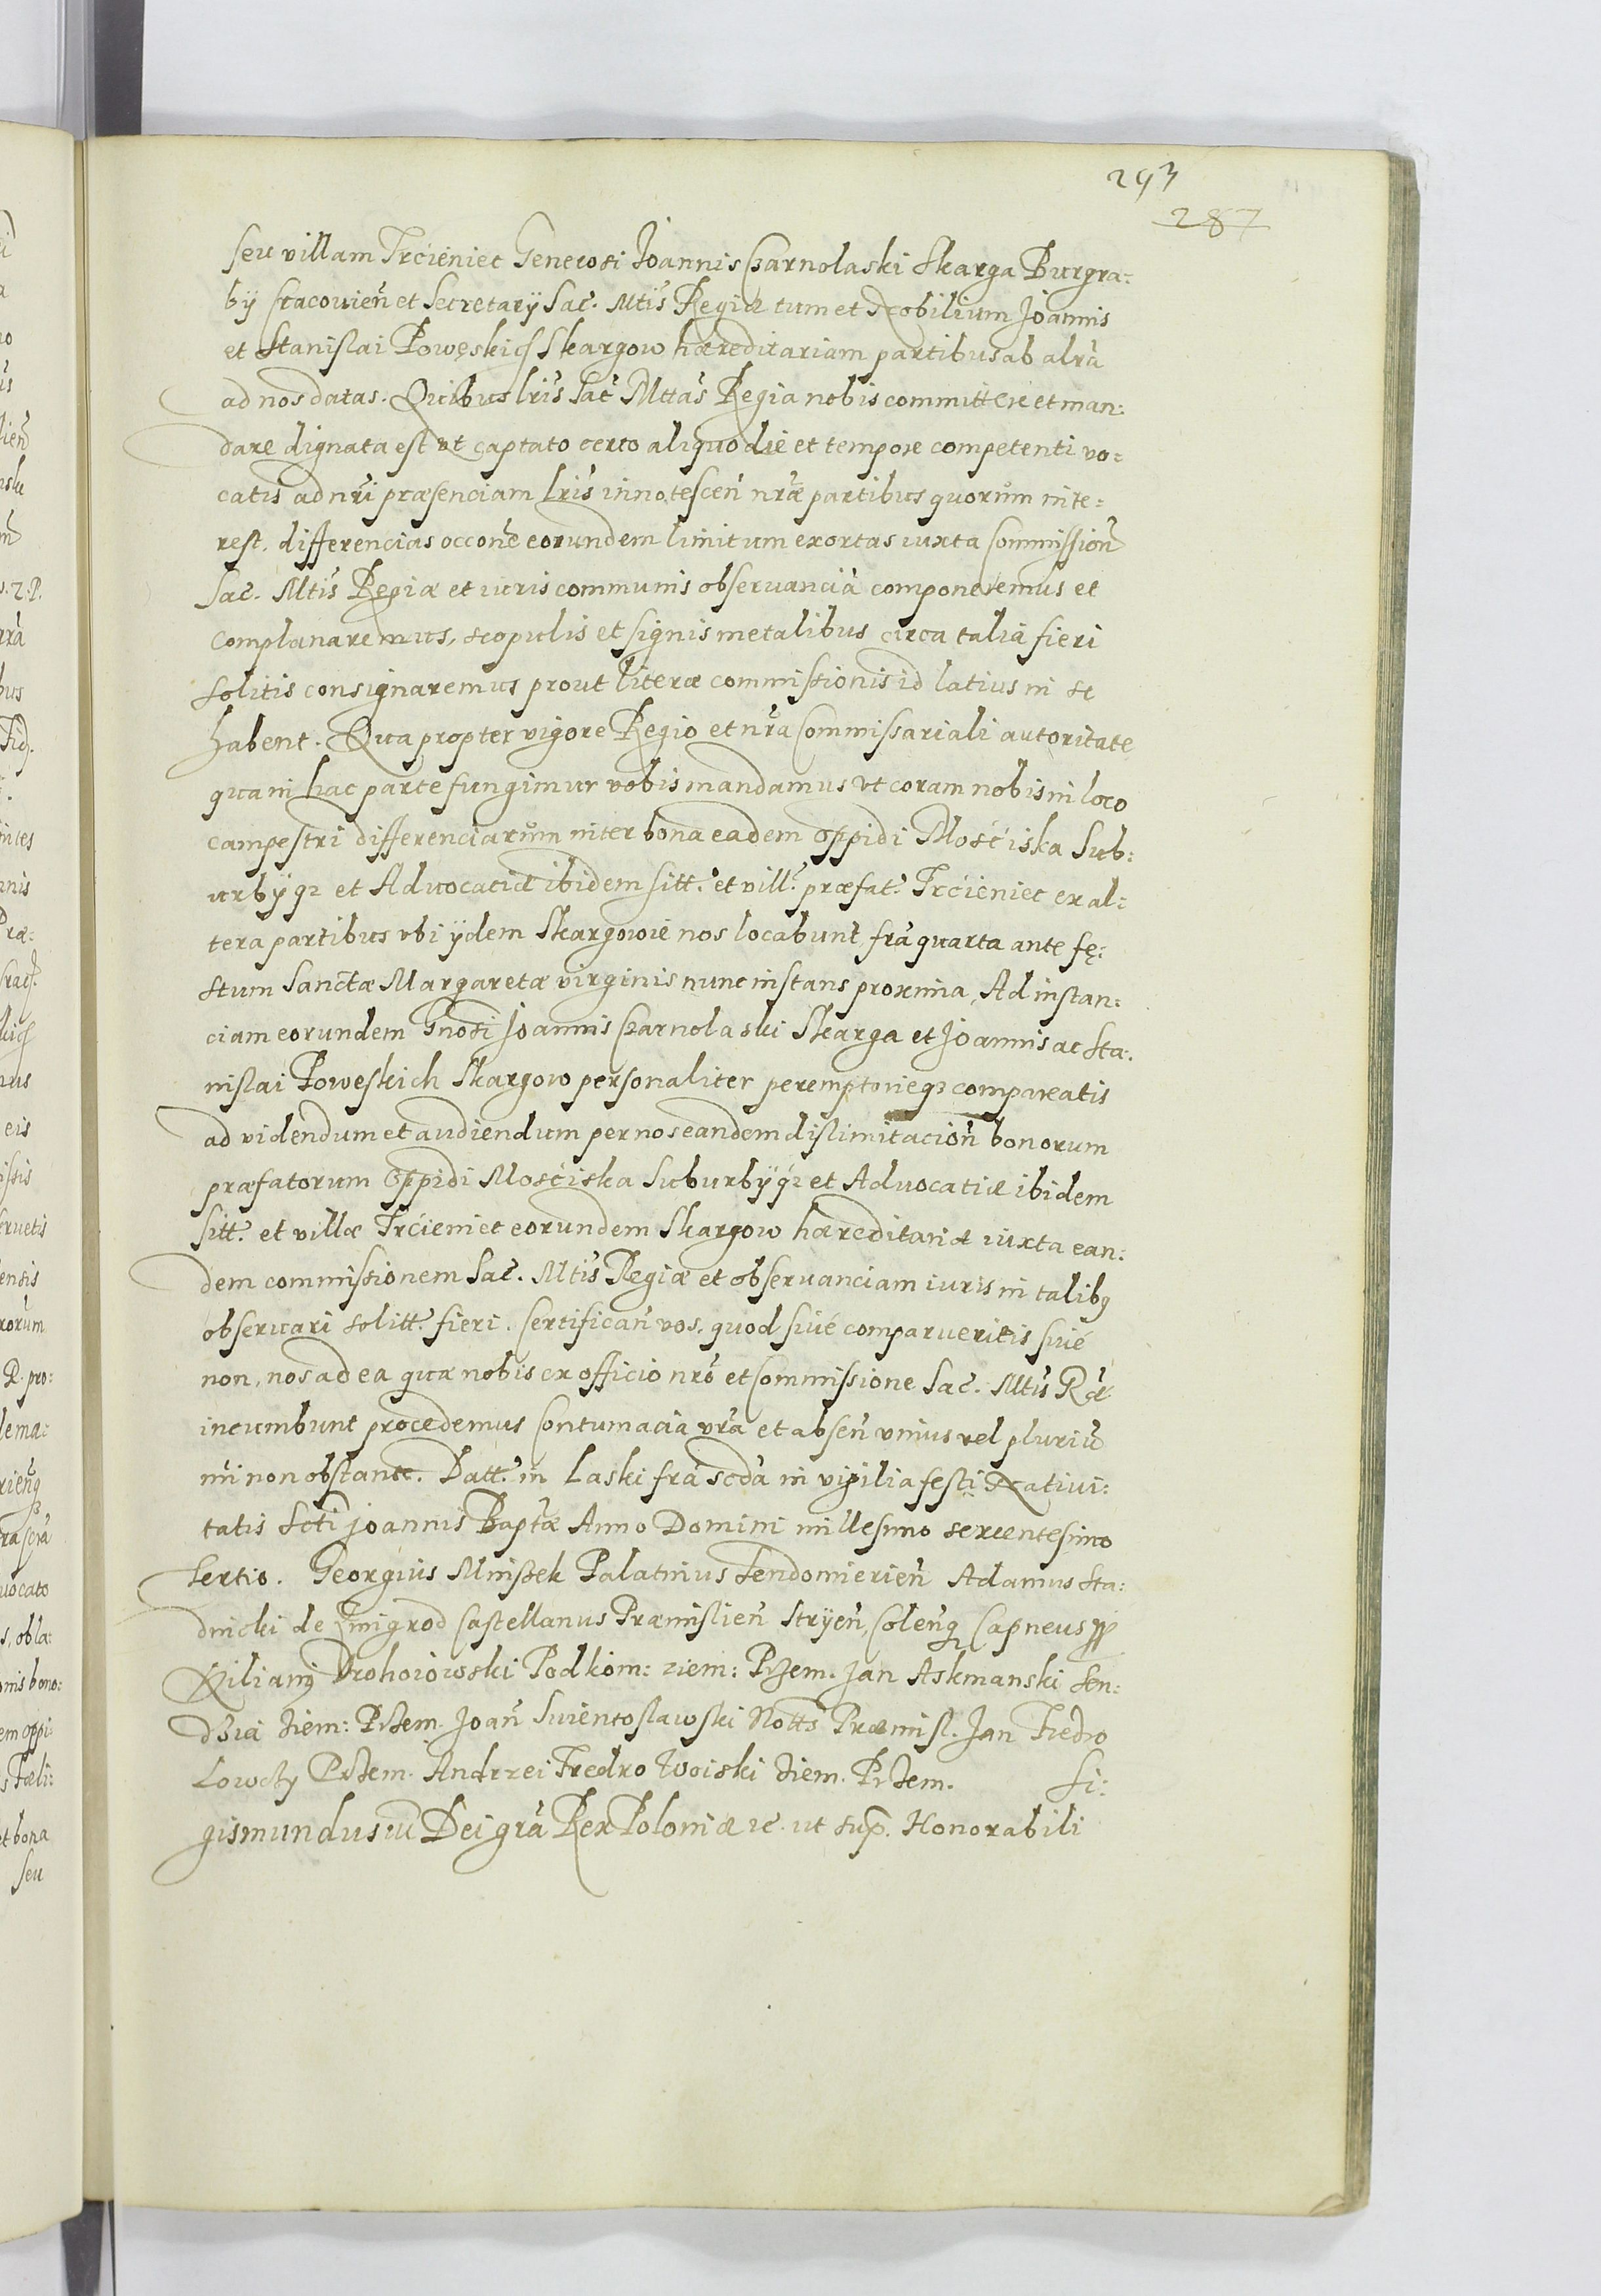 293
287
seu villam Trcieniec Generosi Joannis Czarnolaski Skarga Burgra:
bÿ Cracovien̄ et Secretarÿ Sac̄. Mtis̄ Regiæ tum et Nobilium Joannis
et Stanislai Powęskich Skargow hæreditariam partibus ab alrā
ad nos datas. Quibus lr̄is Sac̄ Mttas̄ Regia nobis committere et man:
dare dignata est ut captato certo aliquo die et tempore competenti vo:
catis ad nr̄i præsenciam lr̄is innotescen̄ nr̄æ partibus quorum inte:
rest, differencias occōne eorundem limitum exortas iuxta Commission̄
Sac̄. Mtis̄ Regiæ et iuris communis observanciā componeremus et
complanaremus, scopulis et signis metalibus circa talia fieri
solitis consignaremus prout literæ commissionis id latius in se
habent. Qua propter vigore Regio et nr̄a Commissariali autoritate
qua in hac parte fungimur vobis mandamus ut coram nobis in loco
campestri differenciarum inter bona eadem oppidi Mościska Sub:
urbÿq₃ et Advocatiæ ibidem sitt. et vill. præfat. Trcieniec ex al:
tera partibus ubi ÿdem Skargowie nos locabunt, fr̄a quarta ante fę:
stum Sanctæ Margaretæ virginis nunc instans proxima, Ad instan:
ciam eorundem Gnosi Joannis Czarnolaski Skarga et Joannis ac Sta:
nislai Poweskich Skargow personaliter peremptorieq₃ compareatis
ad videndum et audiendum per nos eandem dislimitacion̄ bonorum
præfatorum Oppidi Mościska Suburbÿq₃ et Advocatiæ ibidem
sitt. et villæ Trcieniec eorundem Skargow hæreditariæ iuxta ean:
dem commissionem Sac̄. Mtis̄ Regiæ et observanciam iuris in talibꝰ
observari solitt. fieri. Certifican̄ vos, quod sivé comparueritis sivé
non, nos ad ea quæ nobis ex officio nr̄o et Commissione Sac̄. Mtis̄ Rǣ
incumbunt procedemus Contumacia vr̄a et absen̄ unius vel pluriū
mi non obstante. Datt. in Laski fr̄a scdā in vigilia festi Nativi:
tatis Scti Joannis Baptǣ Anno Domini millesimo sexcentesimo
tertio. Georgius Mniszek Palatinus Sendomierien̄ Adamus Sta:
dnicki de Zmigrod Castellanus Præmislien̄ Strÿen̄, Colen̄q Capneus
Kilianꝰ Drohoiowski Podkom: ziem: Przem. Jan Askmanski Sen:
dzia ziem: Przem. Joan̄ Swientoslawski Notts̄ Præmisl. Jan Fredro
Lowczy Przem. Andrzei Fredro Woiski ziem. Przem. Si:
gismundus iii Dei grā Rex Poloniæ ꝛc. ut sup̄. Honorabili